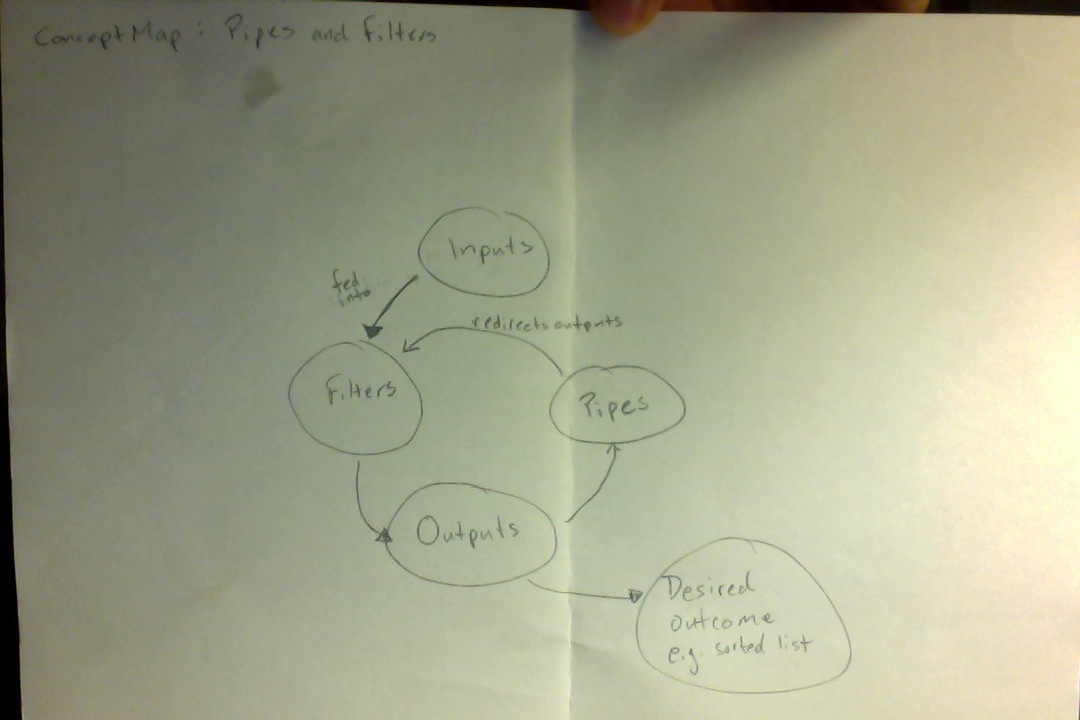 Concept Map : Pipes and Filters
Inputs
fed
into
redirects outputs
Filters
Pipes
Outputs
Desired
outcome
e.g. sorted list